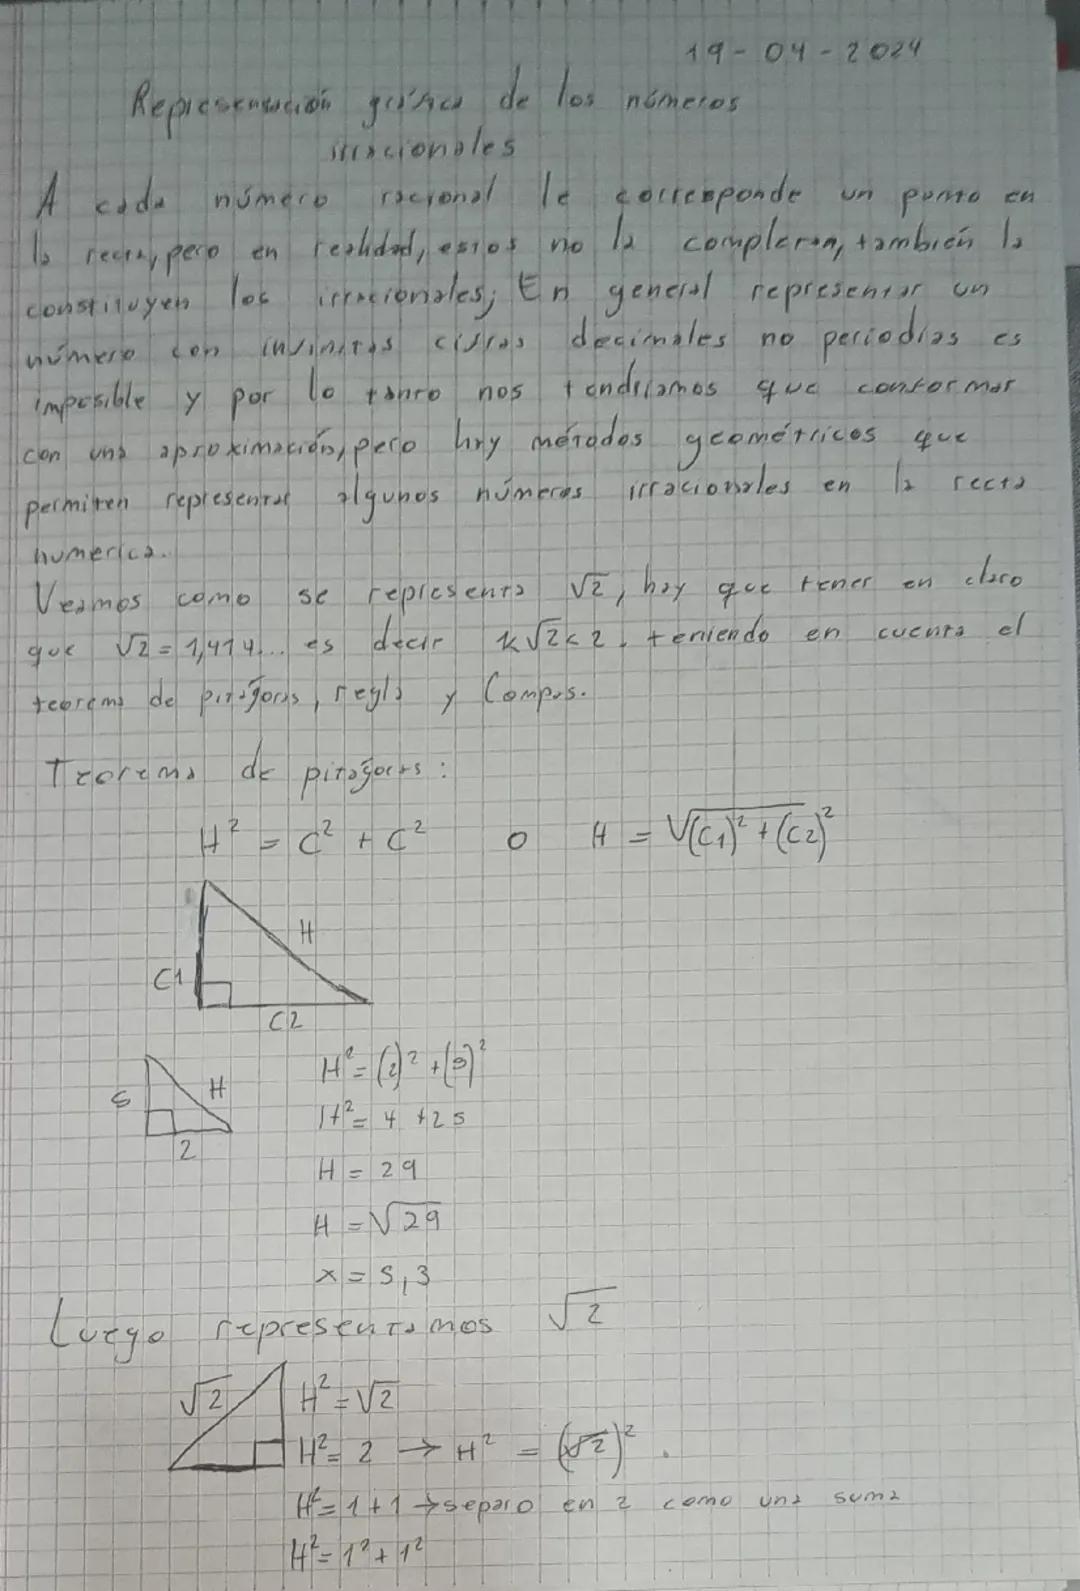 19-04-2024
Representación gráfica de los números
irracionales
A cada número racional le corresponde un punto en
la recta, pero en realidad, estos no la completan, también la
constituyen los irracionales; En general representar un
número con infinitas cifras decimales no periodias es
imposible y por lo tanto nos tendríamos que conformar
con una aproximación, pero hay métodos geométricos que
permiten representar algunos números irracionales en la recta
numerica.
Veamos como se representa √2, hay que tener en claro
que √2 = 1,414... es decir 1<√2<2. teniendo en cuenta el
teorema de pitágoras, regla y Compas.
Teorema de pitágoras:
H² = C² + C² o H = √(C1)² + (C2)²
H
C1
C2
5 H H² = (2)² + (5)²
H² = 4 + 25
2
H = 29
H = √29
x = 5,3
Luego representamos √2
√2 H² = √2
H² = 2 → H² = (√2)².
H² = 1 + 1 → separo en 2 como una suma
H² = 1² + 1²